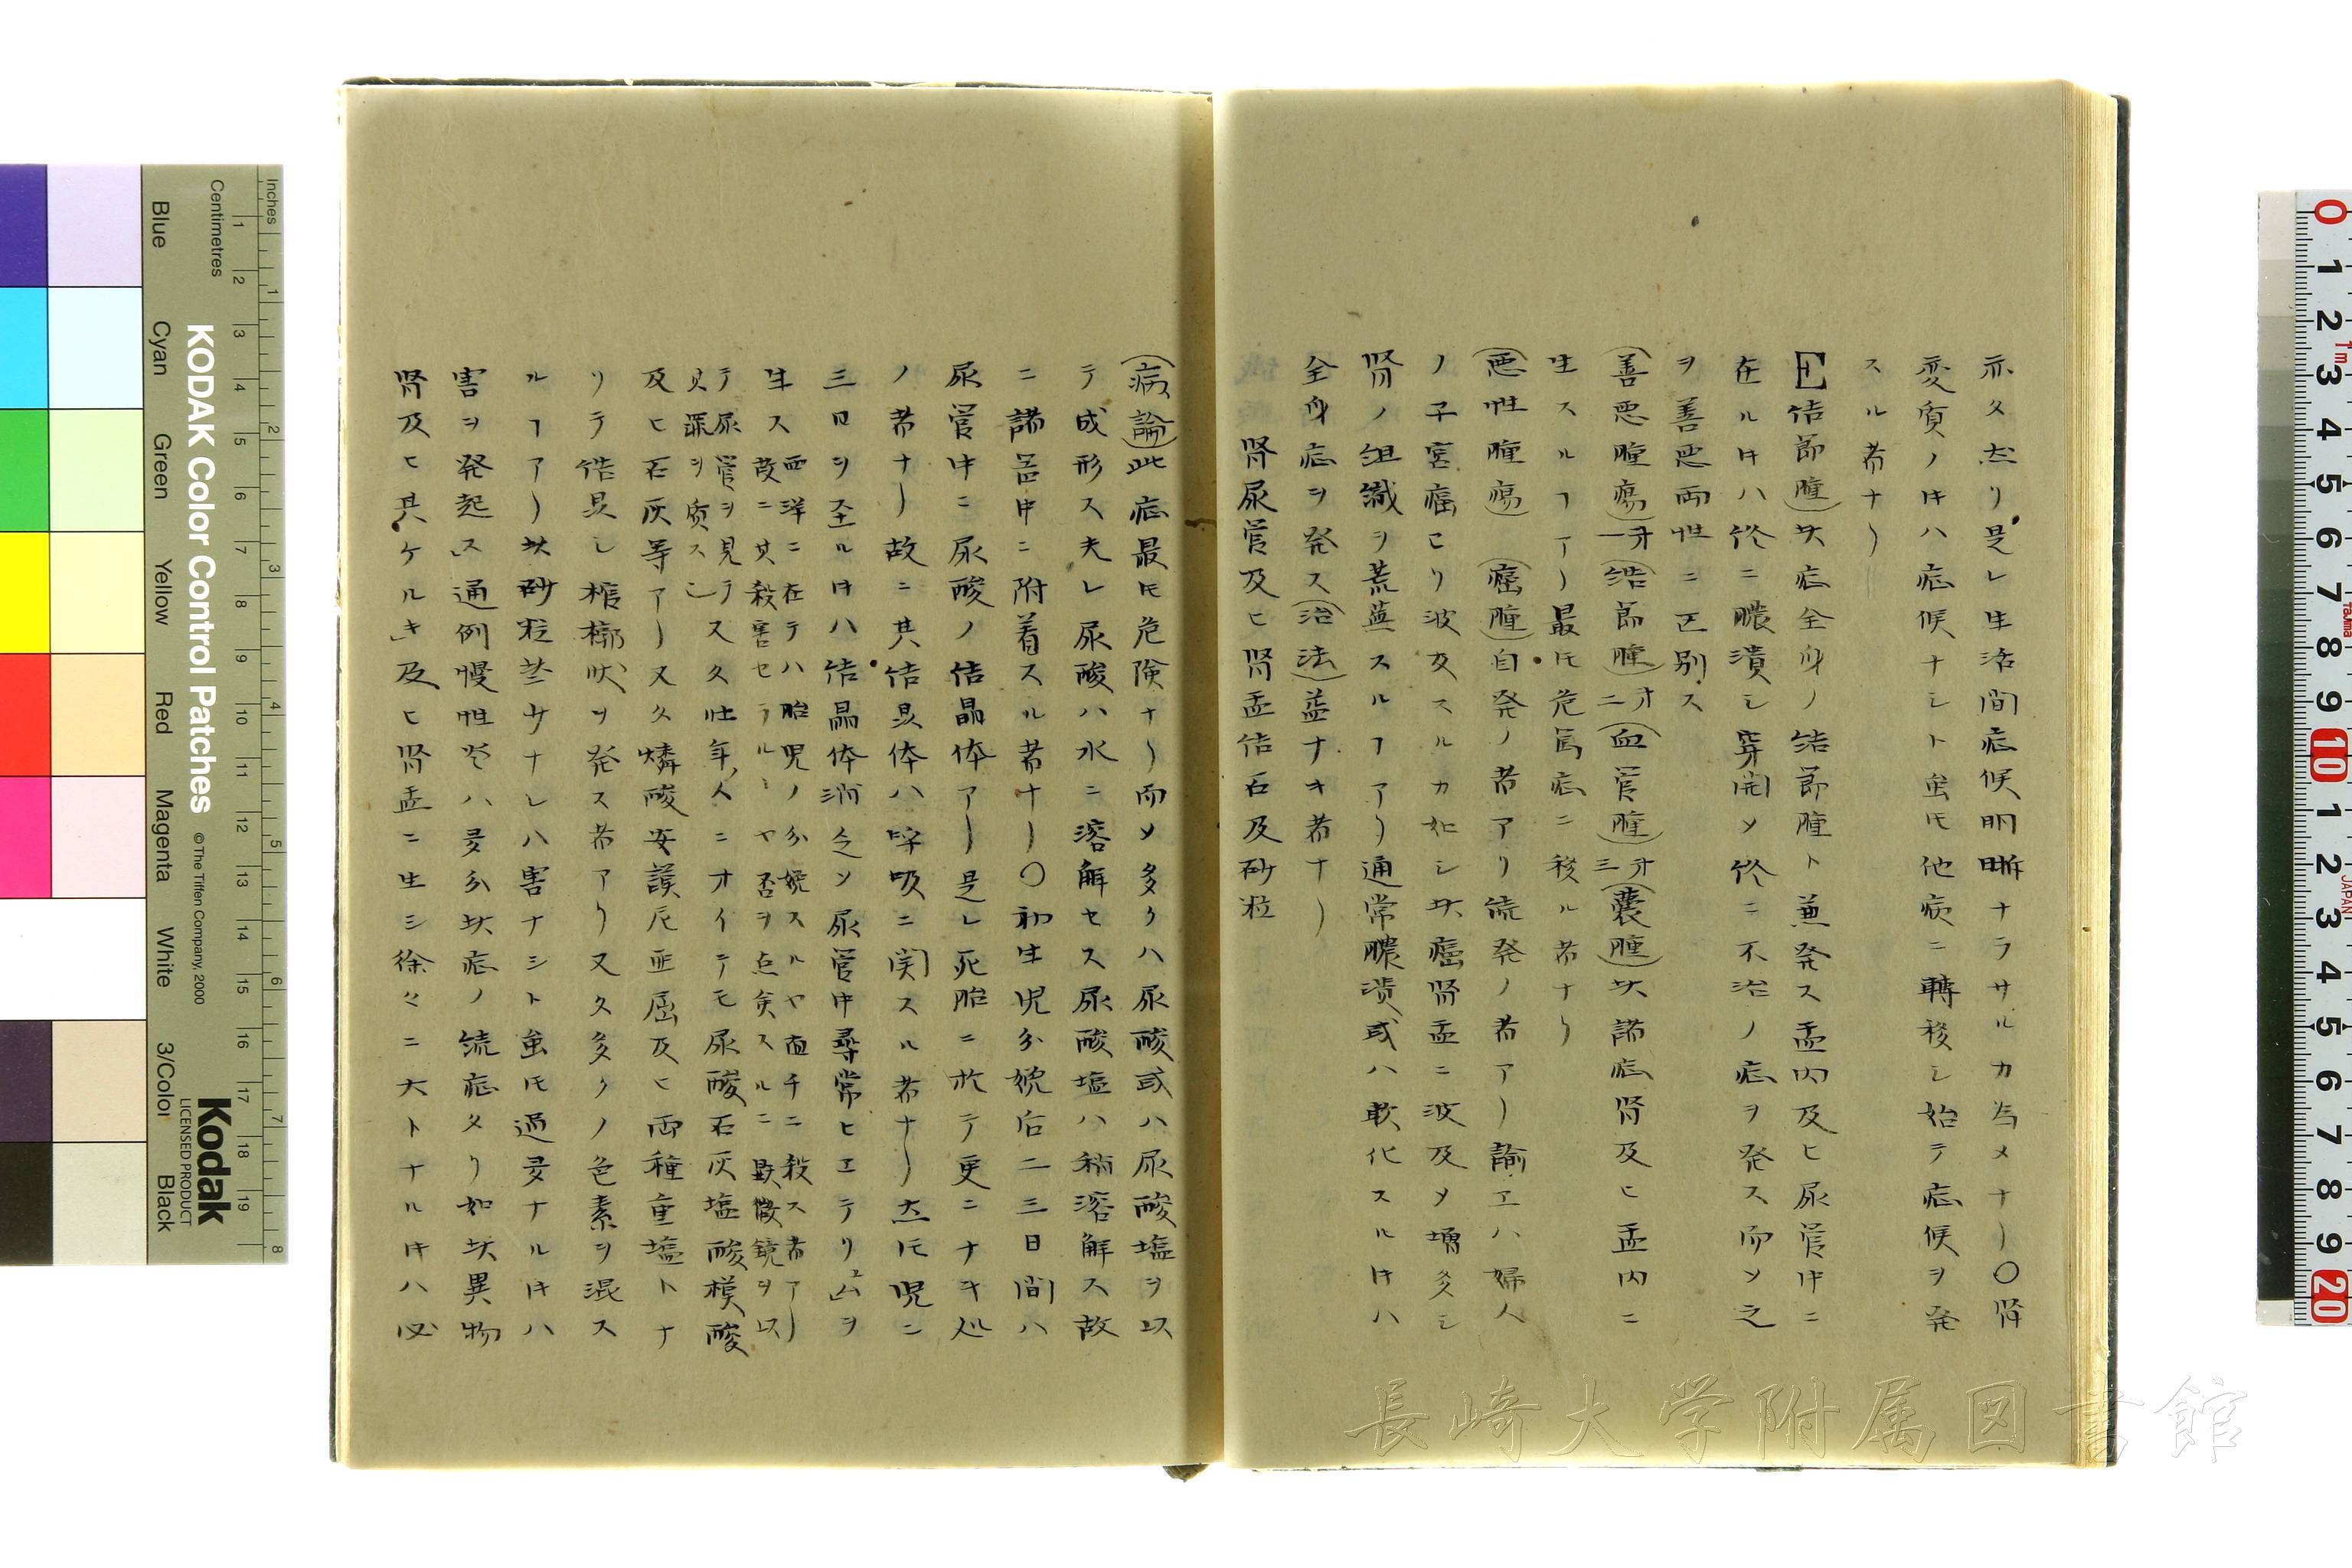 亦タ然リ是レ生活間症候明晣ナラサルカ為メナリ〇腎
変質ノ時ハ症候ナシト虽𪜈他病ニ轉移シ始テ症候ヲ発
スル者ナリ
E結節腫 此症全身ノ結節腫ト兼発ス盂内及ヒ尿管中ニ
在ル時ハ終ニ膿潰シ穿開シテ終ニ不治ノ症ヲ発ス而シテ之
ヲ善悪両性ニ区別ス
(善悪腫瘍)一才(結節腫)二才(血管腫)三才(嚢腫)此諸症腎及ヒ盂内ニ
生スルヿアリ最𪜈危篤症ニ移ル者ナリ
(悪性腫瘍)(癌腫)自発ノ者アリ続発ノ者アリ諭エハ婦人
ノ子宮癌ヨリ波及スルカ如シ此癌腎盂ニ波及シテ増多シ
腎ノ組織ヲ荒蕪スルヿアリ通常膿潰或ハ軟化スル時ハ
全身症ヲ発ス(治法)益ナキ者ナリ
腎尿管及ヒ腎盂結石及砂粒
(病論)此症最𪜈危険ナリ而シテ多クハ尿酸或ハ尿酸塩ヲ以
テ成形ス夫レ尿酸ハ水ニ溶解セス尿酸塩ハ稍溶解ス故
ニ諸器中ニ附着スル者ナリ〇初生児分娩后二三日間ハ
尿管中ニ尿酸ノ結晶体アリ是レ死胎ニ於テ更ニナキ処
ノ者ナリ故ニ其結晶体ハ呼吸ニ関スル者ナリ然𪜈児ニ
三日ヲ至ル時ハ結晶体消乏シテ尿管中尋常ヒエテリユムヲ
生ス
西洋ニ在テハ胎児ノ分娩スルヤ直チニ殺ス者アリ
故ニ其殺害セラルヽヤ否ヲ点検スルニ顕微鏡ヲ以
テ尿管ヲ見テ
其罪ヲ質スヿ
又タ壮年人ニオイテモ尿酸石灰塩酸模酸
及ヒ石灰等アリ又タ燐酸安謨尼亜屈及ヒ両種重塩トナ
リテ結晃シ棺槨状ヲ発ス者アリ又タ多クノ色素ヲ混ス
ルヿアリ此砂粒些少ナレハ害ナシト虽𪜈過多ナル時ハ
害ヲ発起ス通例慢性炎ハ多分此症ノ続症タリ如此異物
腎及ヒ其ケルキ及ヒ腎盂ニ生シ徐々ニ大トナル時ハ必
Inches
Centimetres
KODAK Color Control Patches
©The Tiffen Company, 2000
Kodak
LICENSED PRODUCT
Blue
Cyan
Green
Yellow
Red
Magenta
White
3/Color
Black
長崎大学附属図書館